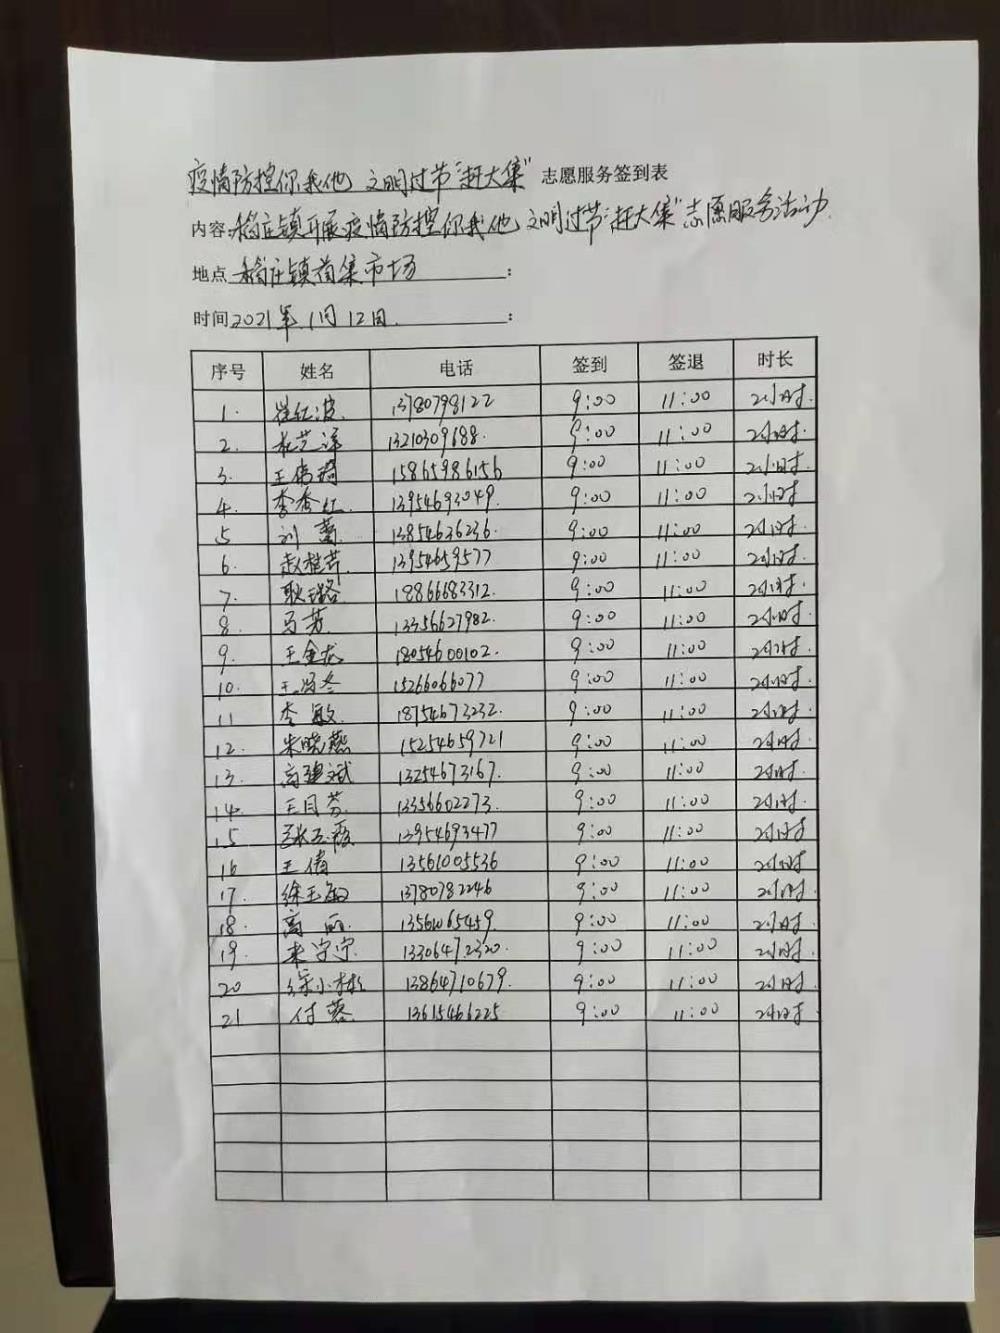 疫情防控你我他 文明过节"赶大集" 志愿服务签到表
内容 稻庄镇开展疫情防控你我他 文明过节"赶大集"志愿服务活动
地点 稻庄镇首集市场 :
时间 2021年1月12日. :
序号 姓名 电话 签到 签退 时长
1. 崔红波 13780798122 9:00 11:00 2小时.
2. 13210309688. 9:00 11:00 2小时.
3. 王倩琦 15865986156 9:00 11:00 2小时.
4. 李秀红 13954693049. 9:00 11:00 2小时
5 刘 13854636236. 9:00 11:00 2小时.
6. 赵桂芹. 13954659577 9:00 11:00 2小时.
7. 耿璐 18866683312. 9:00 11:00 2小时.
8. 马芳. 13356627982. 9:00 11:00 2小时.
9. 王金龙 18054600102. 9:00 11:00 2小时.
10. 王冬 15266066077 9:00 11:00 2小时.
11 李敏. 18754673232. 9:00 11:00 2小时.
12. 朱晓燕 15254659721 9:00 11:00 2小时.
13. 高建斌 13254673167. 9:00 11:00 2小时.
14. 王月芬. 13356602273. 9:00 11:00 2小时.
15 张玉霞 13954693477 9:00 11:00 2小时
16 王倩 13561005536 9:00 11:00 2小时.
17. 徐玉敏 13780782246 9:00 11:00 2小时.
18. 高丽. 13561065459. 9:00 11:00 2小时.
19. 宋宁宁. 13306472320. 9:00 11:00 2小时.
20 徐小彬 13864710679. 9:00 11:00 2小时.
21 付蓉. 13615466225 9:00 11:00 2小时.